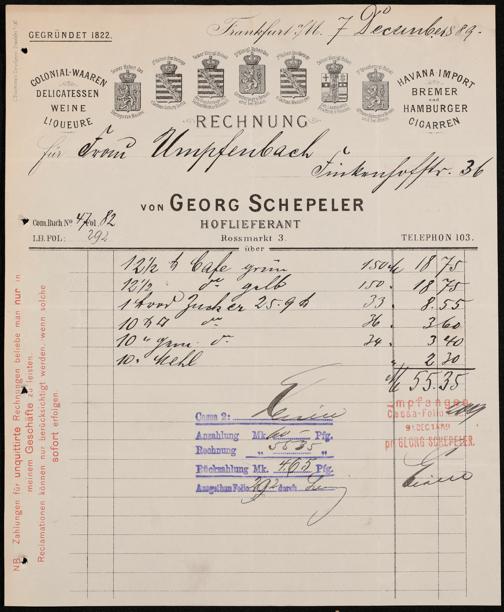 GEGRÜNDET 1822.
Frankfurt a/M. 7 Decemb 1889.
COLONIAL-WAAREN
DELICATESSEN
WEINE
LIQUEURE.
HAVANA IMPORT
BREMER
und
HAMBURGER
CIGARREN.
RECHNUNG
für Frau Umpfenbach
Finkenhofstr. 36
VON GEORG SCHEPELER
HOFLIEFERANT
Rossmarkt 3.
über
Com.Buch No 47 Fol 82
I.B. FOL: 292
TELEPHON 103.
12 1/2 ℔ Cafe grün 150 18 75
12 1/2 do gelb 150 18 75
1 Brod Zucker 25.9 ℔ 33 8.55
10 ℔ do 36 3 60
10 " gem. do 34 3 40
10 " Mehl 2 30
M 55.35
NB. Zahlungen für unquittirte Rechnungen beliebe man nur in
meinem Geschäfte zu leisten.
Reclamationen können nur berücksichtigt werden, wenn solche
sofort erfolgen.
Cassa 2:
Anzahlung Mk. 60 - Pfg.
Rechnung " 55 35 "
Rückzahlung Mk. 4.65 Pfg.
Ausgethan Folio 292 durch
Empfangen
Cassa-Folio
9. DEC. 1889
pr. GEORG SCHEPELER.